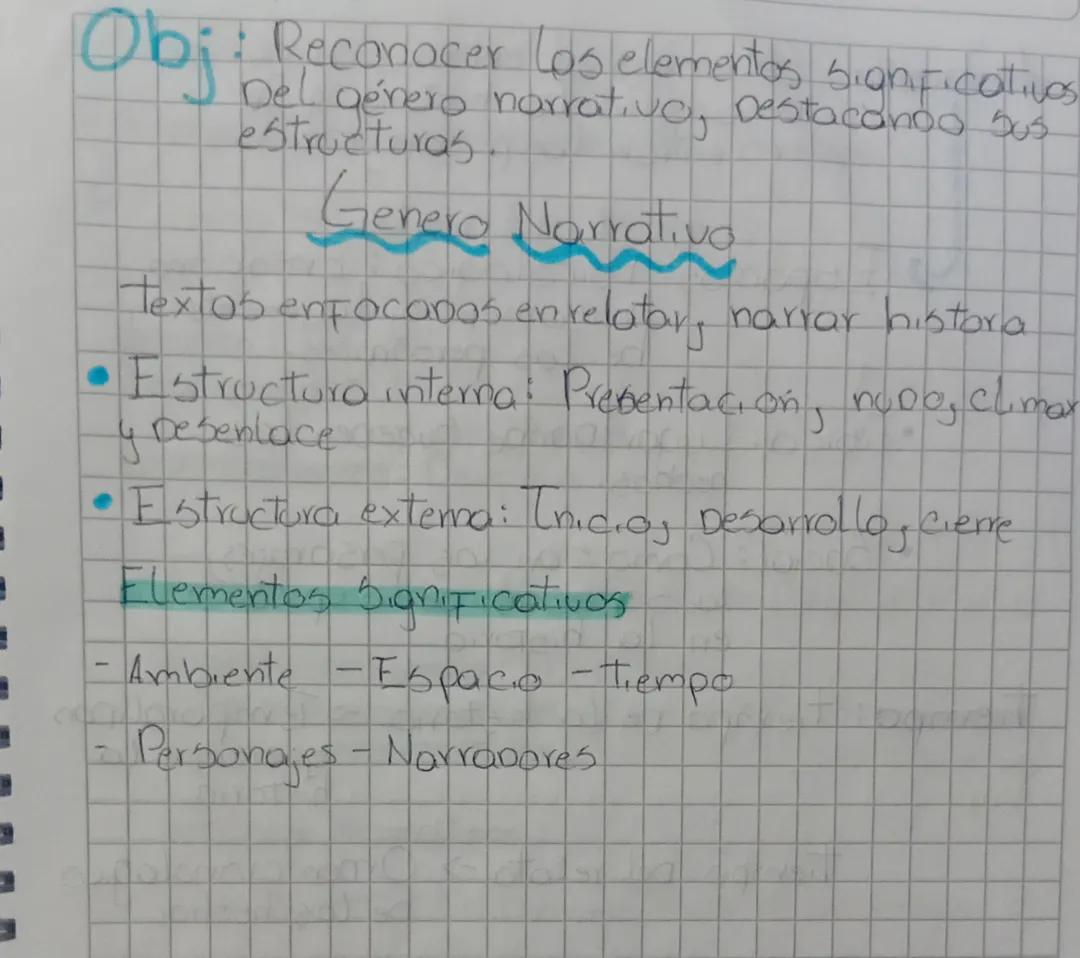 Obj: Reconocer los elementos significativos
Del género narrativo, Destacando sus
estructuras.
Genero Narrativo
Textos enfocados en relatar, narrar historia
• Estructura interna: Presentación, nudo, climax
y Desenlace
• Estructura externa: Inicio, Desarrollo, cierre
Elementos Significativos
- Ambiente - Espacio - Tiempo
- Personajes - Narradores